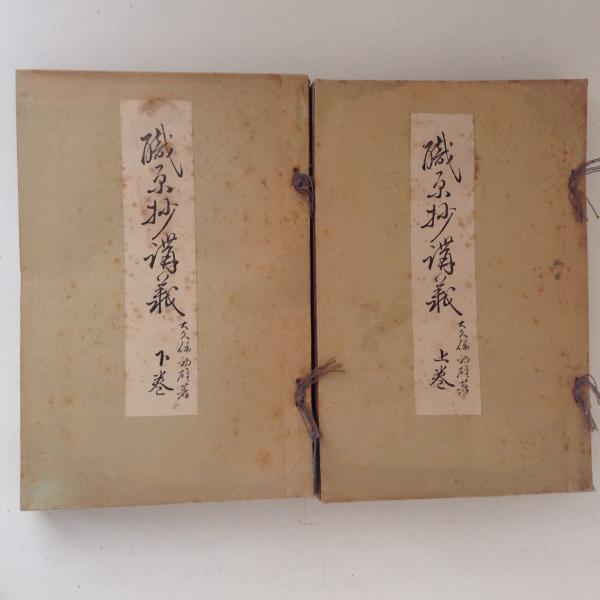 職原抄講義
大久保初雄著
下巻
職原抄講義
大久保初雄著
上巻